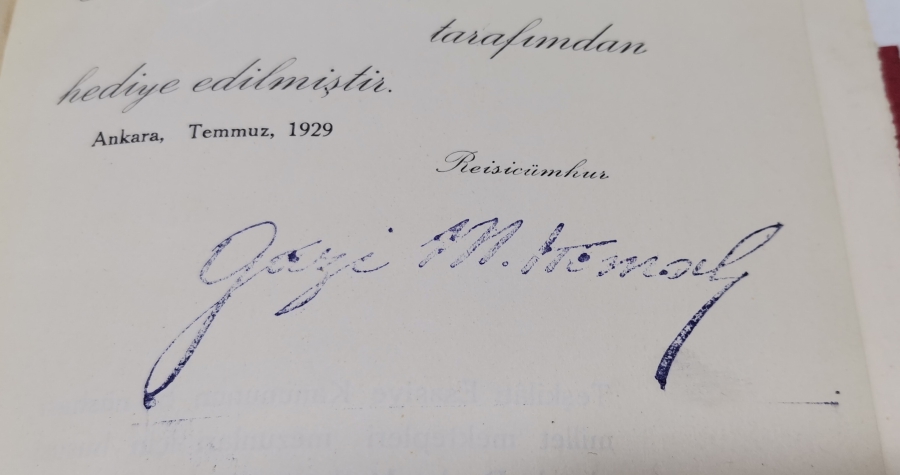 tarafımdan
hediye edilmiştir.
Ankara, Temmuz, 1929
Reisicümhur
Gazi M. Kemal